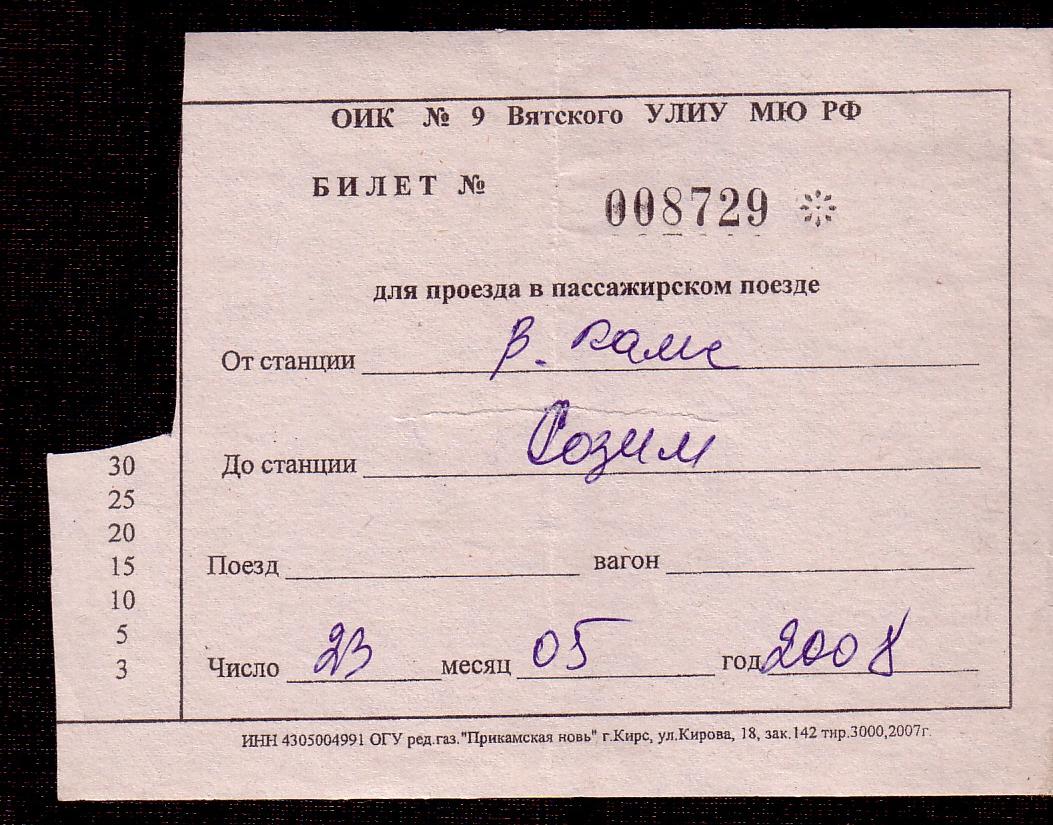 ОИК № 9 Вятского УЛИУ МЮ РФ
БИЛЕТ № 008729
для проезда в пассажирском поезде
От станции В. Каме
До станции Созим
Поезд вагон
30
25
20
15
10
5
3
Число 23 месяц 05 год 2008
ИНН 4305004991 ОГУ ред.газ."Прикамская новь" г.Кирс, ул.Кирова, 18, зак.142 тир.3000,2007г.